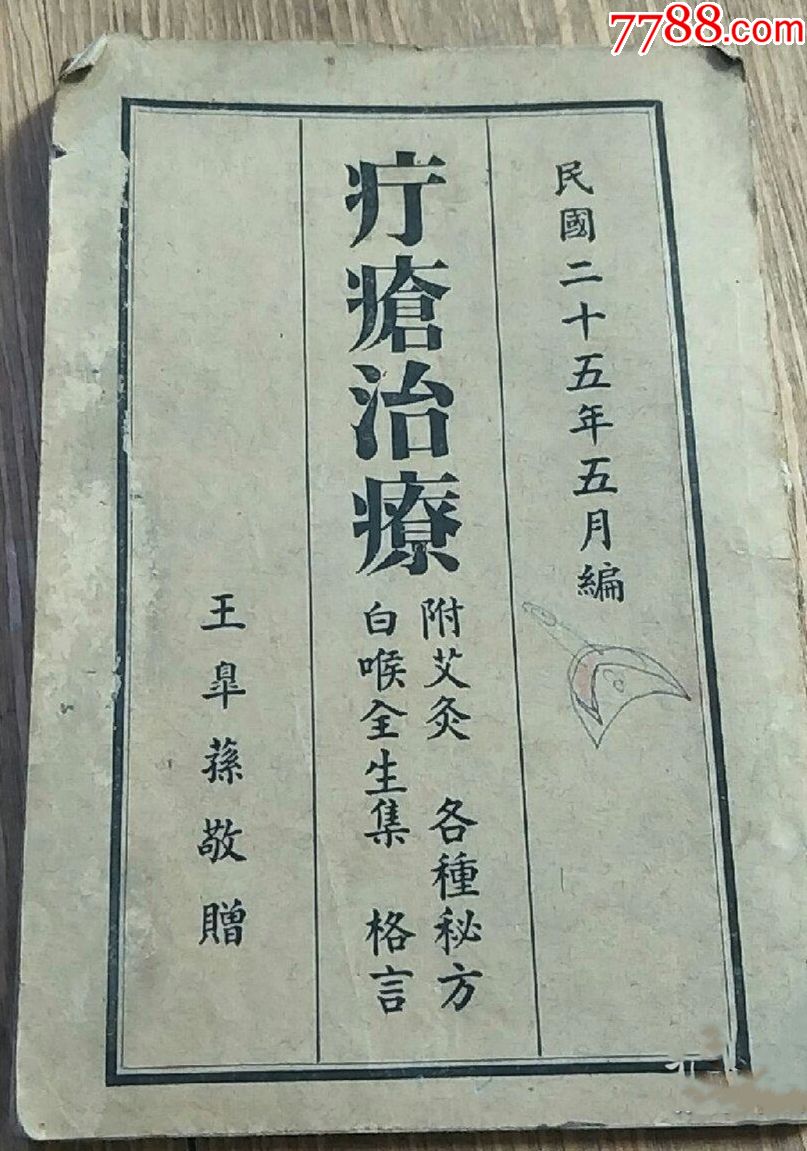 7788.com
民國二十五年五月編
疔瘡治療
附艾灸 各種秘方
白喉全生集 格言
王皐蓀敬贈